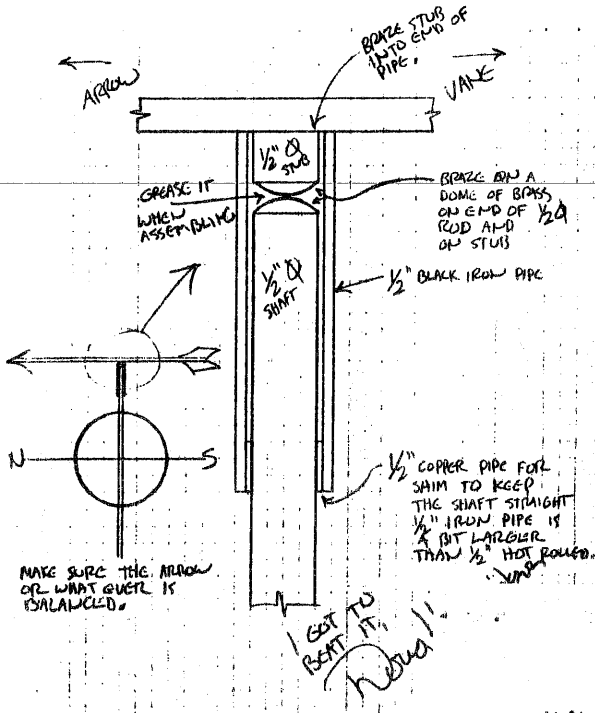 BRAZE STUB
INTO END OF
PIPE.
ARROW
VANE
1/2" Ø
STUB
GREASE IT
WHEN
ASSEMBLING
BRAZE ON A
DOME OF BRASS
ON END OF 1/2 Ø
ROD AND
ON STUB
1/2" Ø
SHAFT
1/2" BLACK IRON PIPE
N
S
1/2" COPPER PIPE FOR
SHIM TO KEEP
THE SHAFT STRAIGHT
1/2" IRON PIPE IS
A BIT LARGER
THAN 1/2" HOT ROLLED.
MAKE SURE THE ARROW
OR WHAT EVER IS
BALANCED.
I GOT TO
BEAT IT,